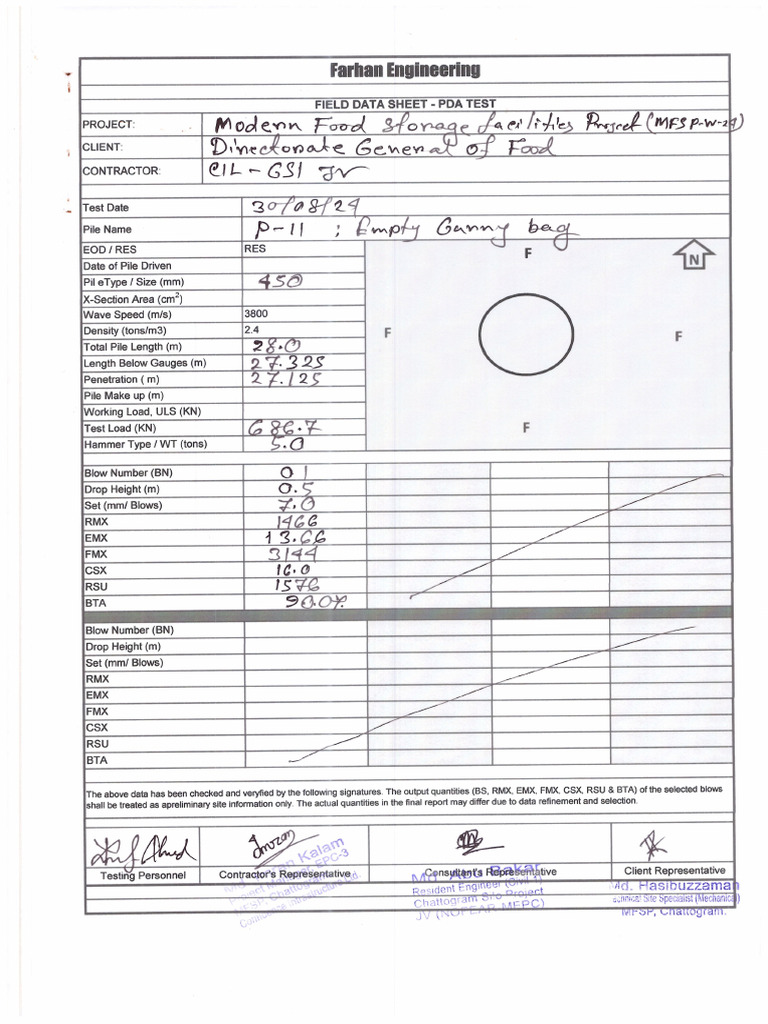 Farhan Engineering
FIELD DATA SHEET - PDA TEST
PROJECT: Modern Food Storage facilities Project (MFSP-W-29)
CLIENT: Directorate General of Food
CONTRACTOR: CIL - GSI JV
Test Date 30/08/24
Pile Name P-11 ; Empty Gunny bag
EOD / RES RES
Date of Pile Driven
Pil eType / Size (mm) 450
X-Section Area (cm2)
Wave Speed (m/s) 3800
Density (tons/m3) 2.4
Total Pile Length (m) 28.0
Length Below Gauges (m) 27.325
Penetration ( m) 27.125
Pile Make up (m)
Working Load, ULS (KN)
Test Load (KN) 686.7
Hammer Type / WT (tons) 5.0
F
N
F
F
F
Blow Number (BN) 01
Drop Height (m) 0.5
Set (mm/ Blows) 7.0
RMX 1466
EMX 13.66
FMX 3144
CSX 16.0
RSU 1576
BTA 90.0%
Blow Number (BN)
Drop Height (m)
Set (mm/ Blows)
RMX
EMX
FMX
CSX
RSU
BTA
The above data has been checked and veryfied by the following signatures. The output quantities (BS, RMX, EMX, FMX, CSX, RSU & BTA) of the selected blows
shall be treated as apreliminary site information only. The actual quantities in the final report may differ due to data refinement and selection.
Testing Personnel
Contractor's Representative
Kalam
EPC-3
MFSP, Chattogram
Consultant's Representative
Md. Abu Bakar
Resident Engineer
Chattogram Silo Project
JV (NOFEAR-MEPC)
Client Representative
Md. Hasibuzzaman
Technical Site Specialist (Mechanical)
MFSP, Chattogram.